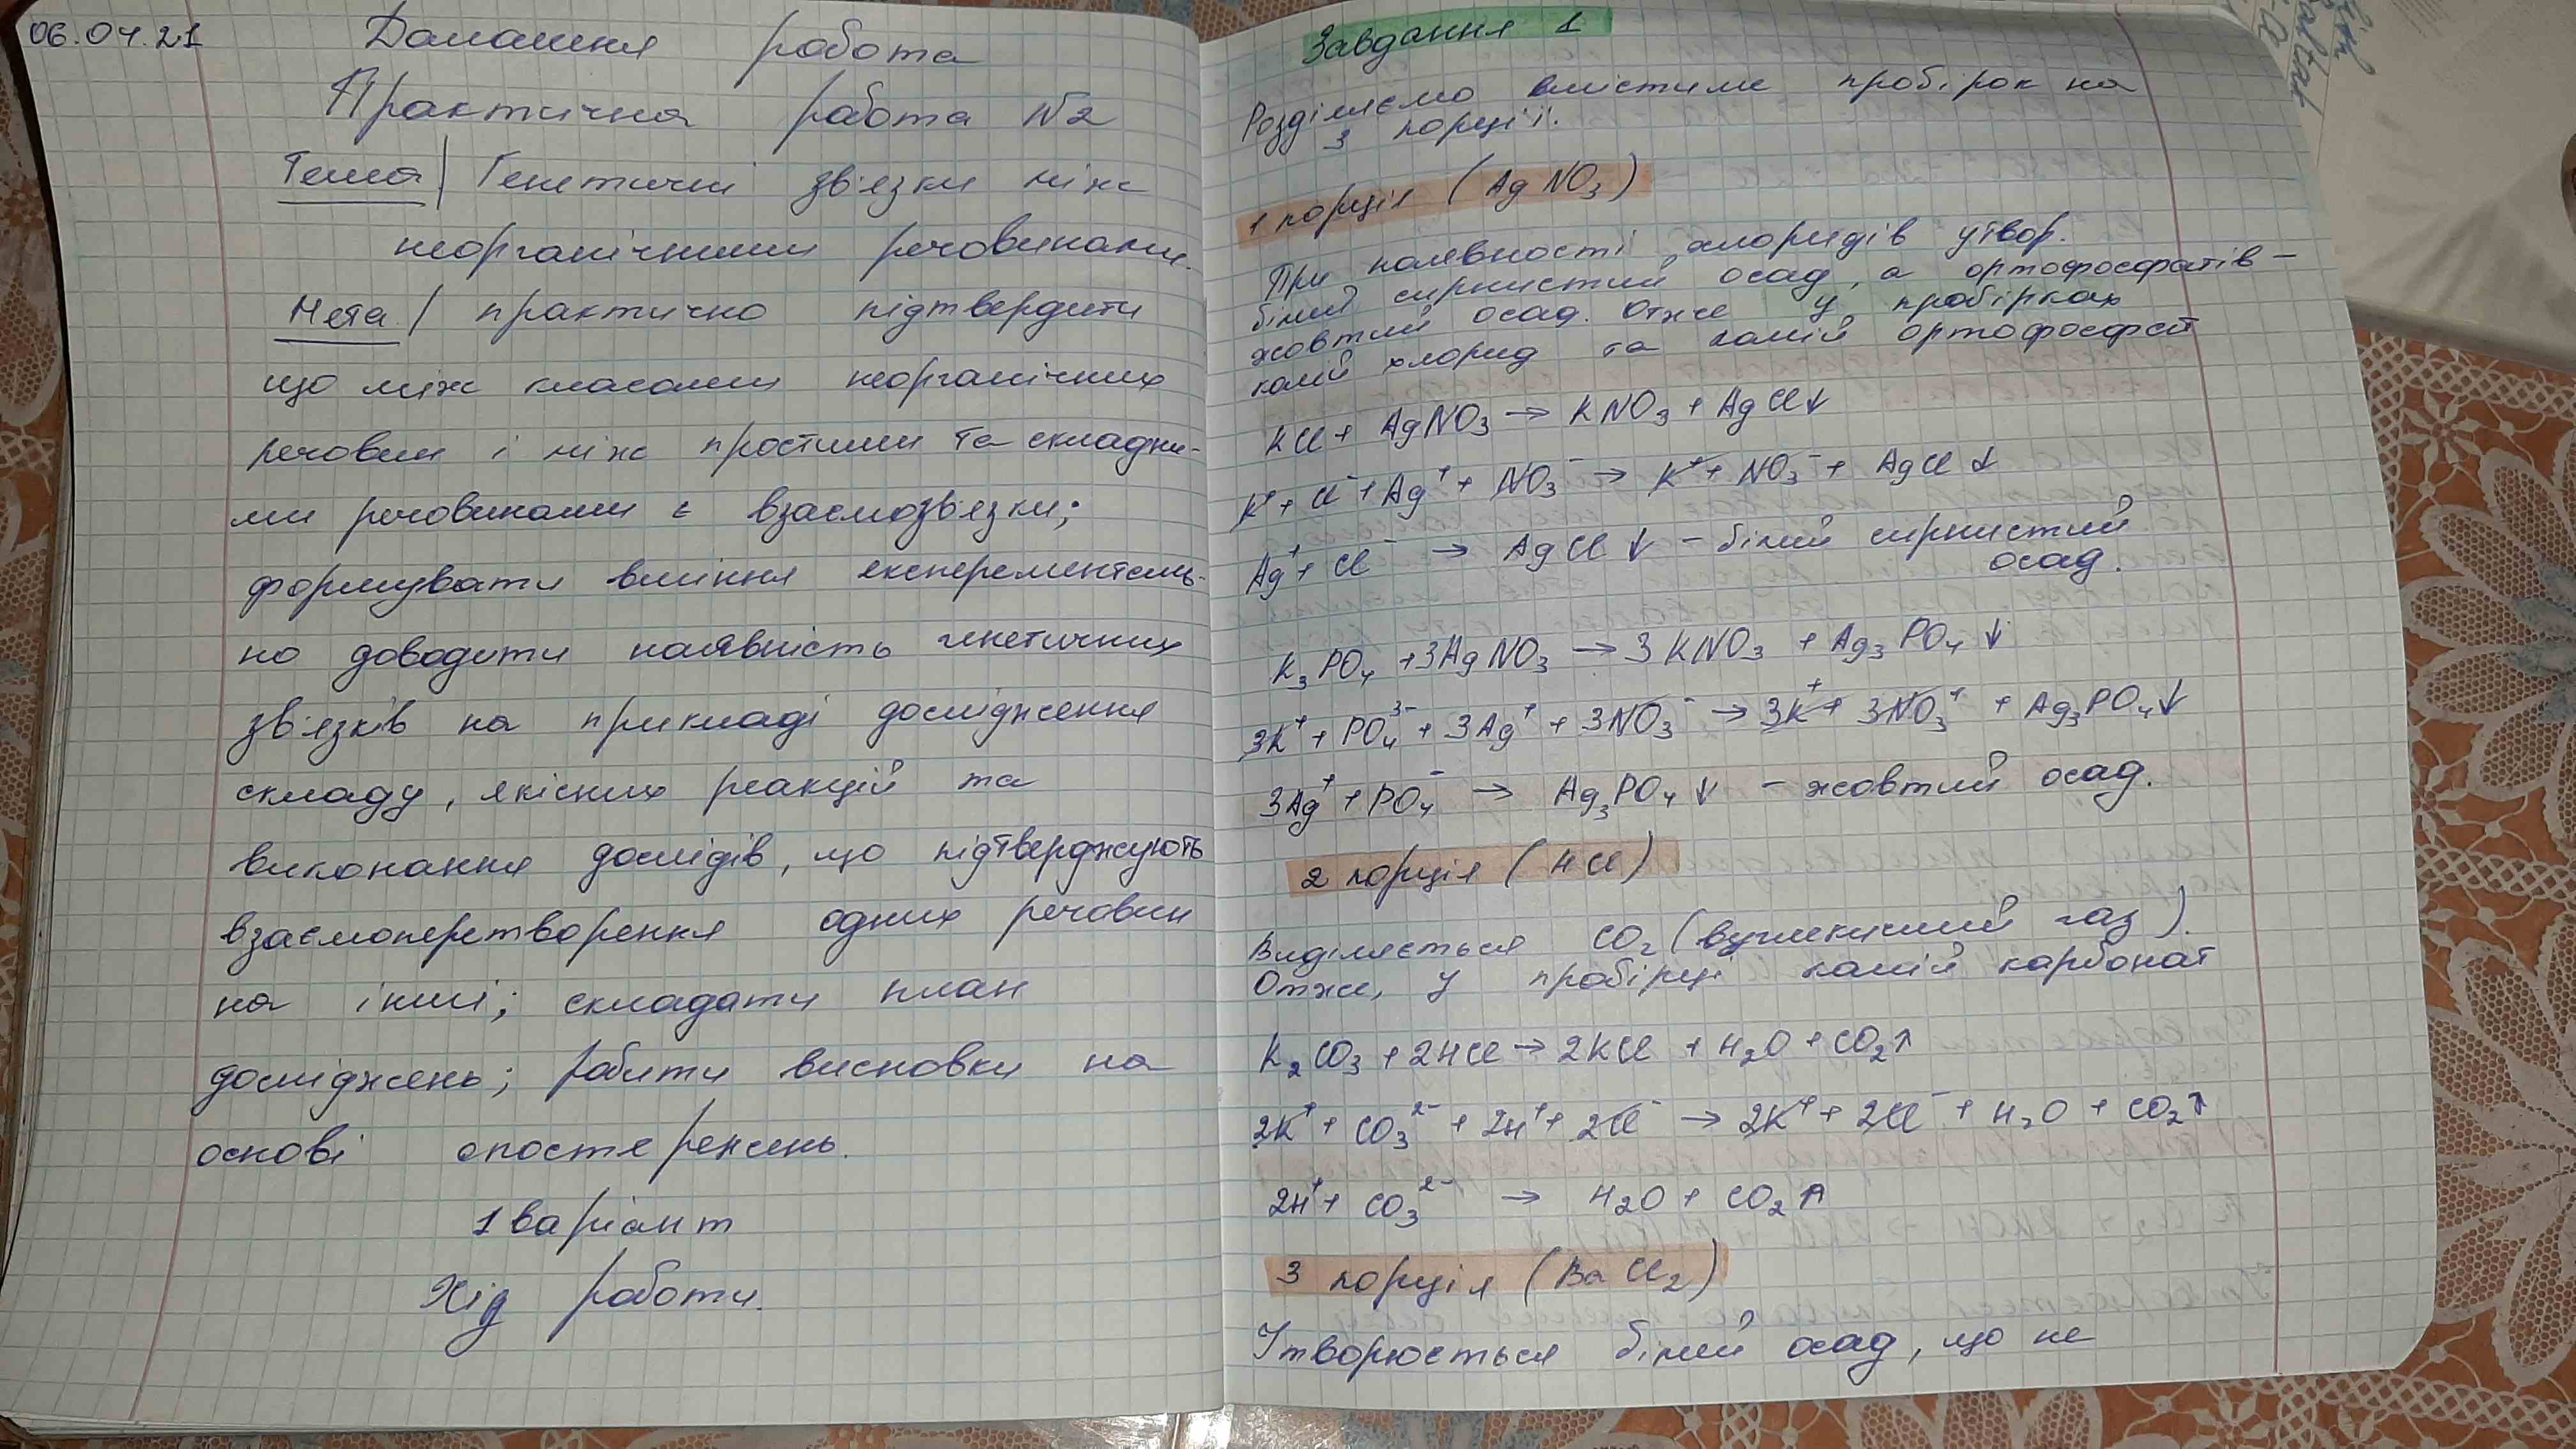 06.04.21
Домашня робота
Практична робота №2
Тема/ Генетичні зв'язки між
неорганічними речовинами.
Мета/ практично підтвердити
що між класами неорганічних
речовин і між простими та складни-
ми речовинами є взаємозв'язки;
формувати вміння експеременталь-
но доводити наявність генетичних
зв'язків на прикладі дослідження
складу, якісних реакцій та
виконання дослідів, що підтверджують
взаємоперетворення одних речовин
на інші; складати план
досліджень; робити висновки на
основі спостережень.
1 варіант
Хід роботи.
Завдання 1
Розділяємо вмістиме пробірок на
3 порції.
1 порція (AgNO₃)
При наявності хлоридів утвор.
білий сирнистий осад, а ортофосфатів –
жовтий осад. Отже у пробірках
калій хлорид та калій ортофосфат
KCl + AgNO₃ → KNO₃ + AgCl↓
K⁺ + Cl⁻ + Ag⁺ + NO₃⁻ → K⁺ + NO₃⁻ + AgCl↓
Ag⁺ + Cl⁻ → AgCl↓ – білий сирнистий
осад.
K₃PO₄ + 3AgNO₃ → 3KNO₃ + Ag₃PO₄↓
3K⁺ + PO₄³⁻ + 3Ag⁺ + 3NO₃⁻ → 3K⁺ + 3NO₃⁺ + Ag₃PO₄↓
3Ag⁺ + PO₄⁻ → Ag₃PO₄↓ – жовтий осад.
2 порція (HCl)
Виділяється CO₂ (вуглекислий газ).
Отже, у пробірці калій карбонат
K₂CO₃ + 2HCl → 2KCl + H₂O + CO₂↑
2K⁺ + CO₃²⁻ + 2H⁺ + 2Cl⁻ → 2K⁺ + 2Cl⁻ + H₂O + CO₂↑
2H⁺ + CO₃²⁻ → H₂O + CO₂↑
3 порція (BaCl₂)
Утворюється білий осад, що не